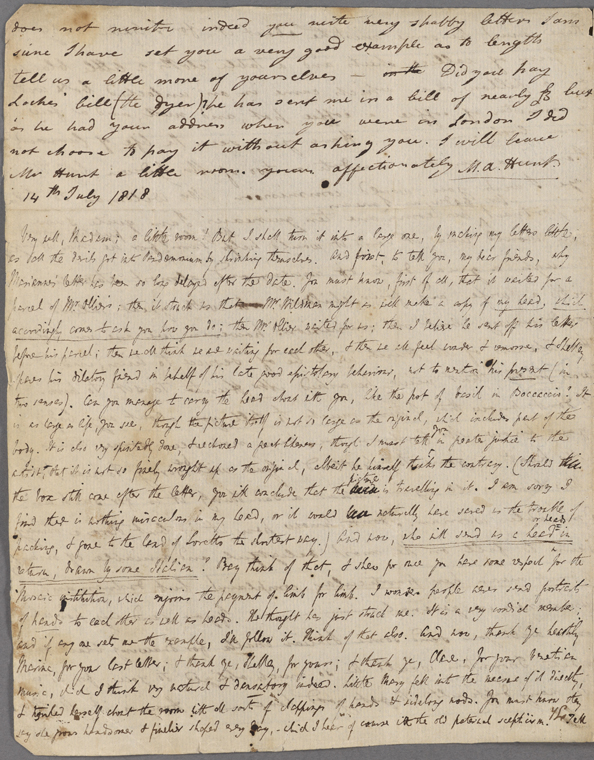 does not write indeed you write very shabby letters I am
sure I have set you a very good example as to length
tell us a little more of yourselves — Did you pay
Lockes bill (the dyer)? he has sent me in a bill of nearly £3 but
as he had your address when you were in London I did
not choose to pay it without asking you. I will leave
Mr Hunt a little room. yours affectionately M.A. Hunt
14th July 1818
Very well, Madam; a little room! But I shall turn it into a large one, by making my letters little,
as the devils got into Pandemonium by shrinking themselves. And first, to tell you, my dear friends, why
Marianne's letter has been so long delayed after the date. You must know, first of all, that it waited for a
parcel of Mr Ollier's; then it struck us that Mr might as well make a copy of my head, which
accordingly comes to ask you how you do; then Mr Ollier waited for us; then I believe he sent off his letter
before his parcel; then we all think we are waiting for each other, & then we all feel wonder & remorse, & Shelley
his dilatory friend in behalf of his late good epistolary behaviour, not to mention his present (in
two senses). Can you manage to carry the head about with you, like the pot of Basil in Boccaccio? It
is as large as life, you see, though the picture itself is not so large as the original, which includes part of the
body. It is also very spiritedly done, & reckoned a great likeness; though I must tell you in poetic justice to the
artist, that it is not so finely wrought up as the original, albeit he himself thinks the contrary. (Should
the box still come after the letter, you will conclude that the is travelling in it. I am sorry I
find there is nothing miraculous in my head, or it would naturally have saved us the trouble of
packing, & gone to the land of Loretto the shortest way.) And now, who will send us a head or heads in
return, drawn by some Italian? Pray think of that, & shew for once you have some respect for the
Mosaic institution, which enjoins the payment of limb for limb. I wonder people never send portraits
of hands to each other as well as heads. The thought has just struck me. It is a very cordial member;
and if any one sets me the example, I'll follow it. Think of that also. And now, thank ye heartily,
Marina, for your last letter; & thank ye, Shelley, for yours; & thank ye, Clare, for your Venetian
music, which I think very natural & indeed. Little Mary fell into the measure of it directly,
& herself about the room with all sort of clappings of hands & sidelong nods. You must know they
say she grows handsomer & finelier shaped every day, - which I hear of course with the old paternal scepticism.